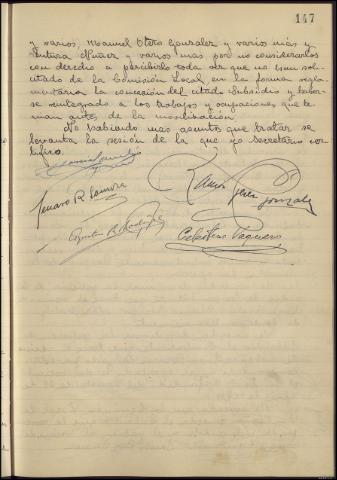 147
y varios, Manuel Otero Gonzalez y varios mas y
Ventura Nuñez y varios mas por no considerarlos
con derecho a percibirlo toda vez que no han soli-
citado de la Comisión Local en la forma regla-
mentaria la concesión del citado Subsidio y haber-
se reintegrado a los trabajos y ocupaciones que te-
nian antes de la movilización.
No habiendo mas asuntos que tratar se
levanta la sesión de la que yo Secretario cer-
tifico.
Ramon Perez Gonzalez
Genaro R. Zamora
Celestino Vaquero